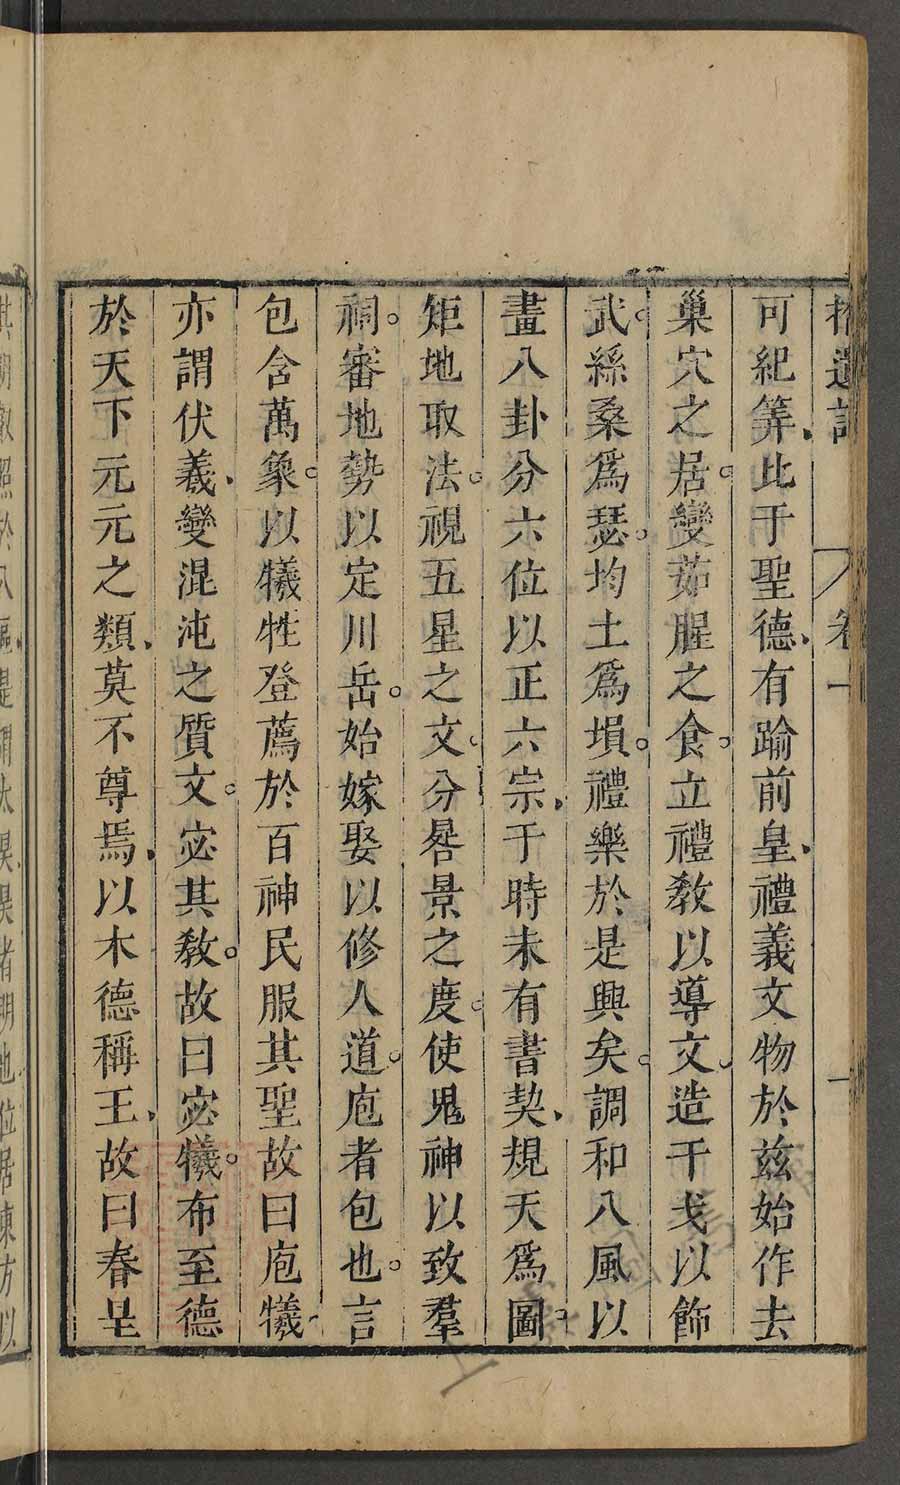 拾遺記 卷一 一
可紀筭比于聖德有踰前皇禮義文物於兹始作去
巢穴之居變茹腥之食立禮敎以導文造干戈以飾
武絲桑爲瑟均土爲塤禮樂於是興矣調和八風以
畫八卦分六位以正六宗于時未有書契規天爲圖
矩地取法視五星之文分晷景之度使鬼神以致羣
祠審地勢以定川岳始嫁娶以修人道庖者包也言
包含萬象以犧牲登薦於百神民服其聖故曰庖犧
亦謂伏羲變混沌之質文宓其敎故曰宓犧布至德
於天下元元之類莫不尊焉以木德稱王故曰春皇